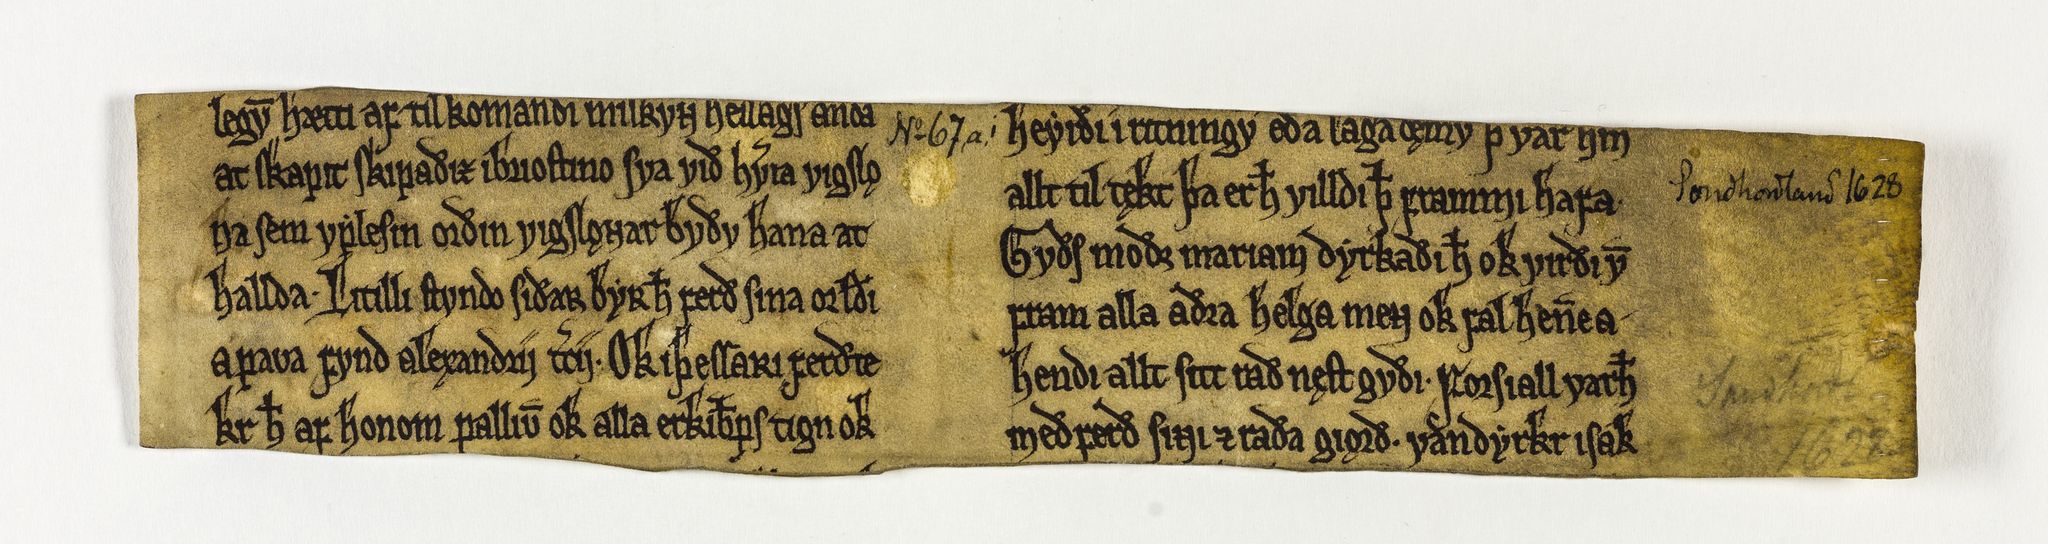 legū hætti aꝼ til komandi milkun heilags anda
at skapit skipaðiz i briostino sva við hꝩra vigslo
na sem vꝑlesin orðin vigslonnar byðu hana at
hallda. Litilli stundo siðaʀ bẏʀ h̄ ꝼerð sina or lði
a pava ꝼund alexandrij t̄cij. Ok i þessari ꝼerð te
kr h̄ aꝼ honom palliū ok alla erkibꝑs tign ok
Nº 67 a.
heẏrði i ritningu eða laga ę̨inu þ var hm
allt til tękt þa er h̄ villdi þ̄ ꝼrammi haꝼa.
Guðs moðꝛ mariam dẏrkaði h̄ ok virði ū
ꝼram alla aðra helga menn ok ꝼal hen̄e a
hendi allt sitt rað nęst guði. Forsiall var h̄
með ꝼerð sinni ⁊ raða giorð. vandẏrkr i sak
Sondhordland 1628
Sundhordl
1628